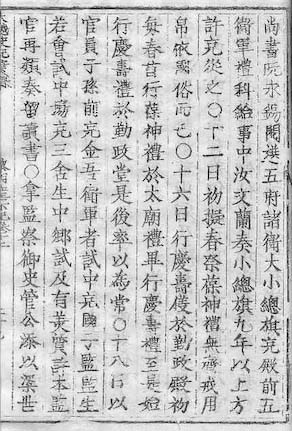 尚書院永錫閱選五府諸衛大小總旗充殿前五
衛軍禮科給事中汝文蘭奏小總旗九年以上方
許充從之〇十二日初擬春祭葆神禮無齋戒用
帛俗而已〇十六日行慶壽儀於勤政殿初
每春首行葆神禮於太廟禮畢行慶壽禮至是始
行慶壽禮於勤政堂是後率以為常〇十八日以
官員子孫前充金吾衛軍者試中充國子監監生
若會試中場充三舍生中鄉試及有英質許本監
官再類奏留讀書〇拿監察御史管公添以世